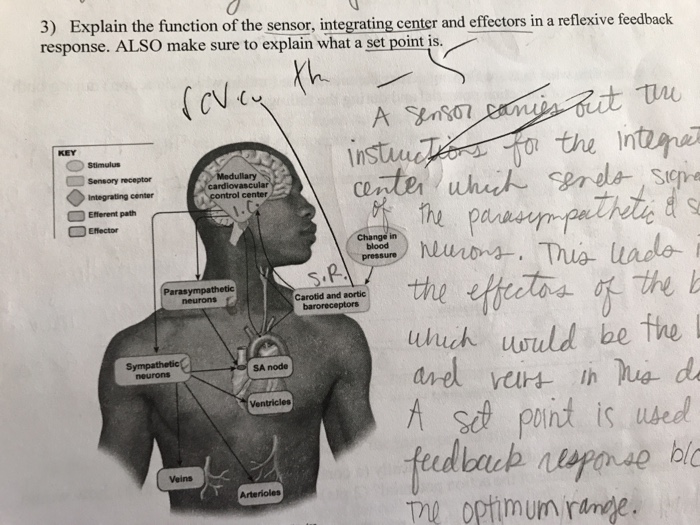 3) Explain the function of the sensor, integrating center and effectors in a reflexive feedback
response. ALSO make sure to explain what a set point is.
- 5
A sensor carries out the
instructions for the integrat
center which sends signa
of the parasympathetic & s
neurons. This leads
the effectors of the b
which would be the
and veins in this d
A set point is used
feedback response b/c
the optimum range.
KEY
Stimulus
Sensory receptor
Integrating center
Efferent path
Effector
Medullary
cardiovascular
control center
I.C.
Change in
blood
pressure
S.R.
Carotid and aortic
baroreceptors
Parasympathetic
neurons
Sympathetic
neurons
SA node
Ventricles
Veins
Arterioles